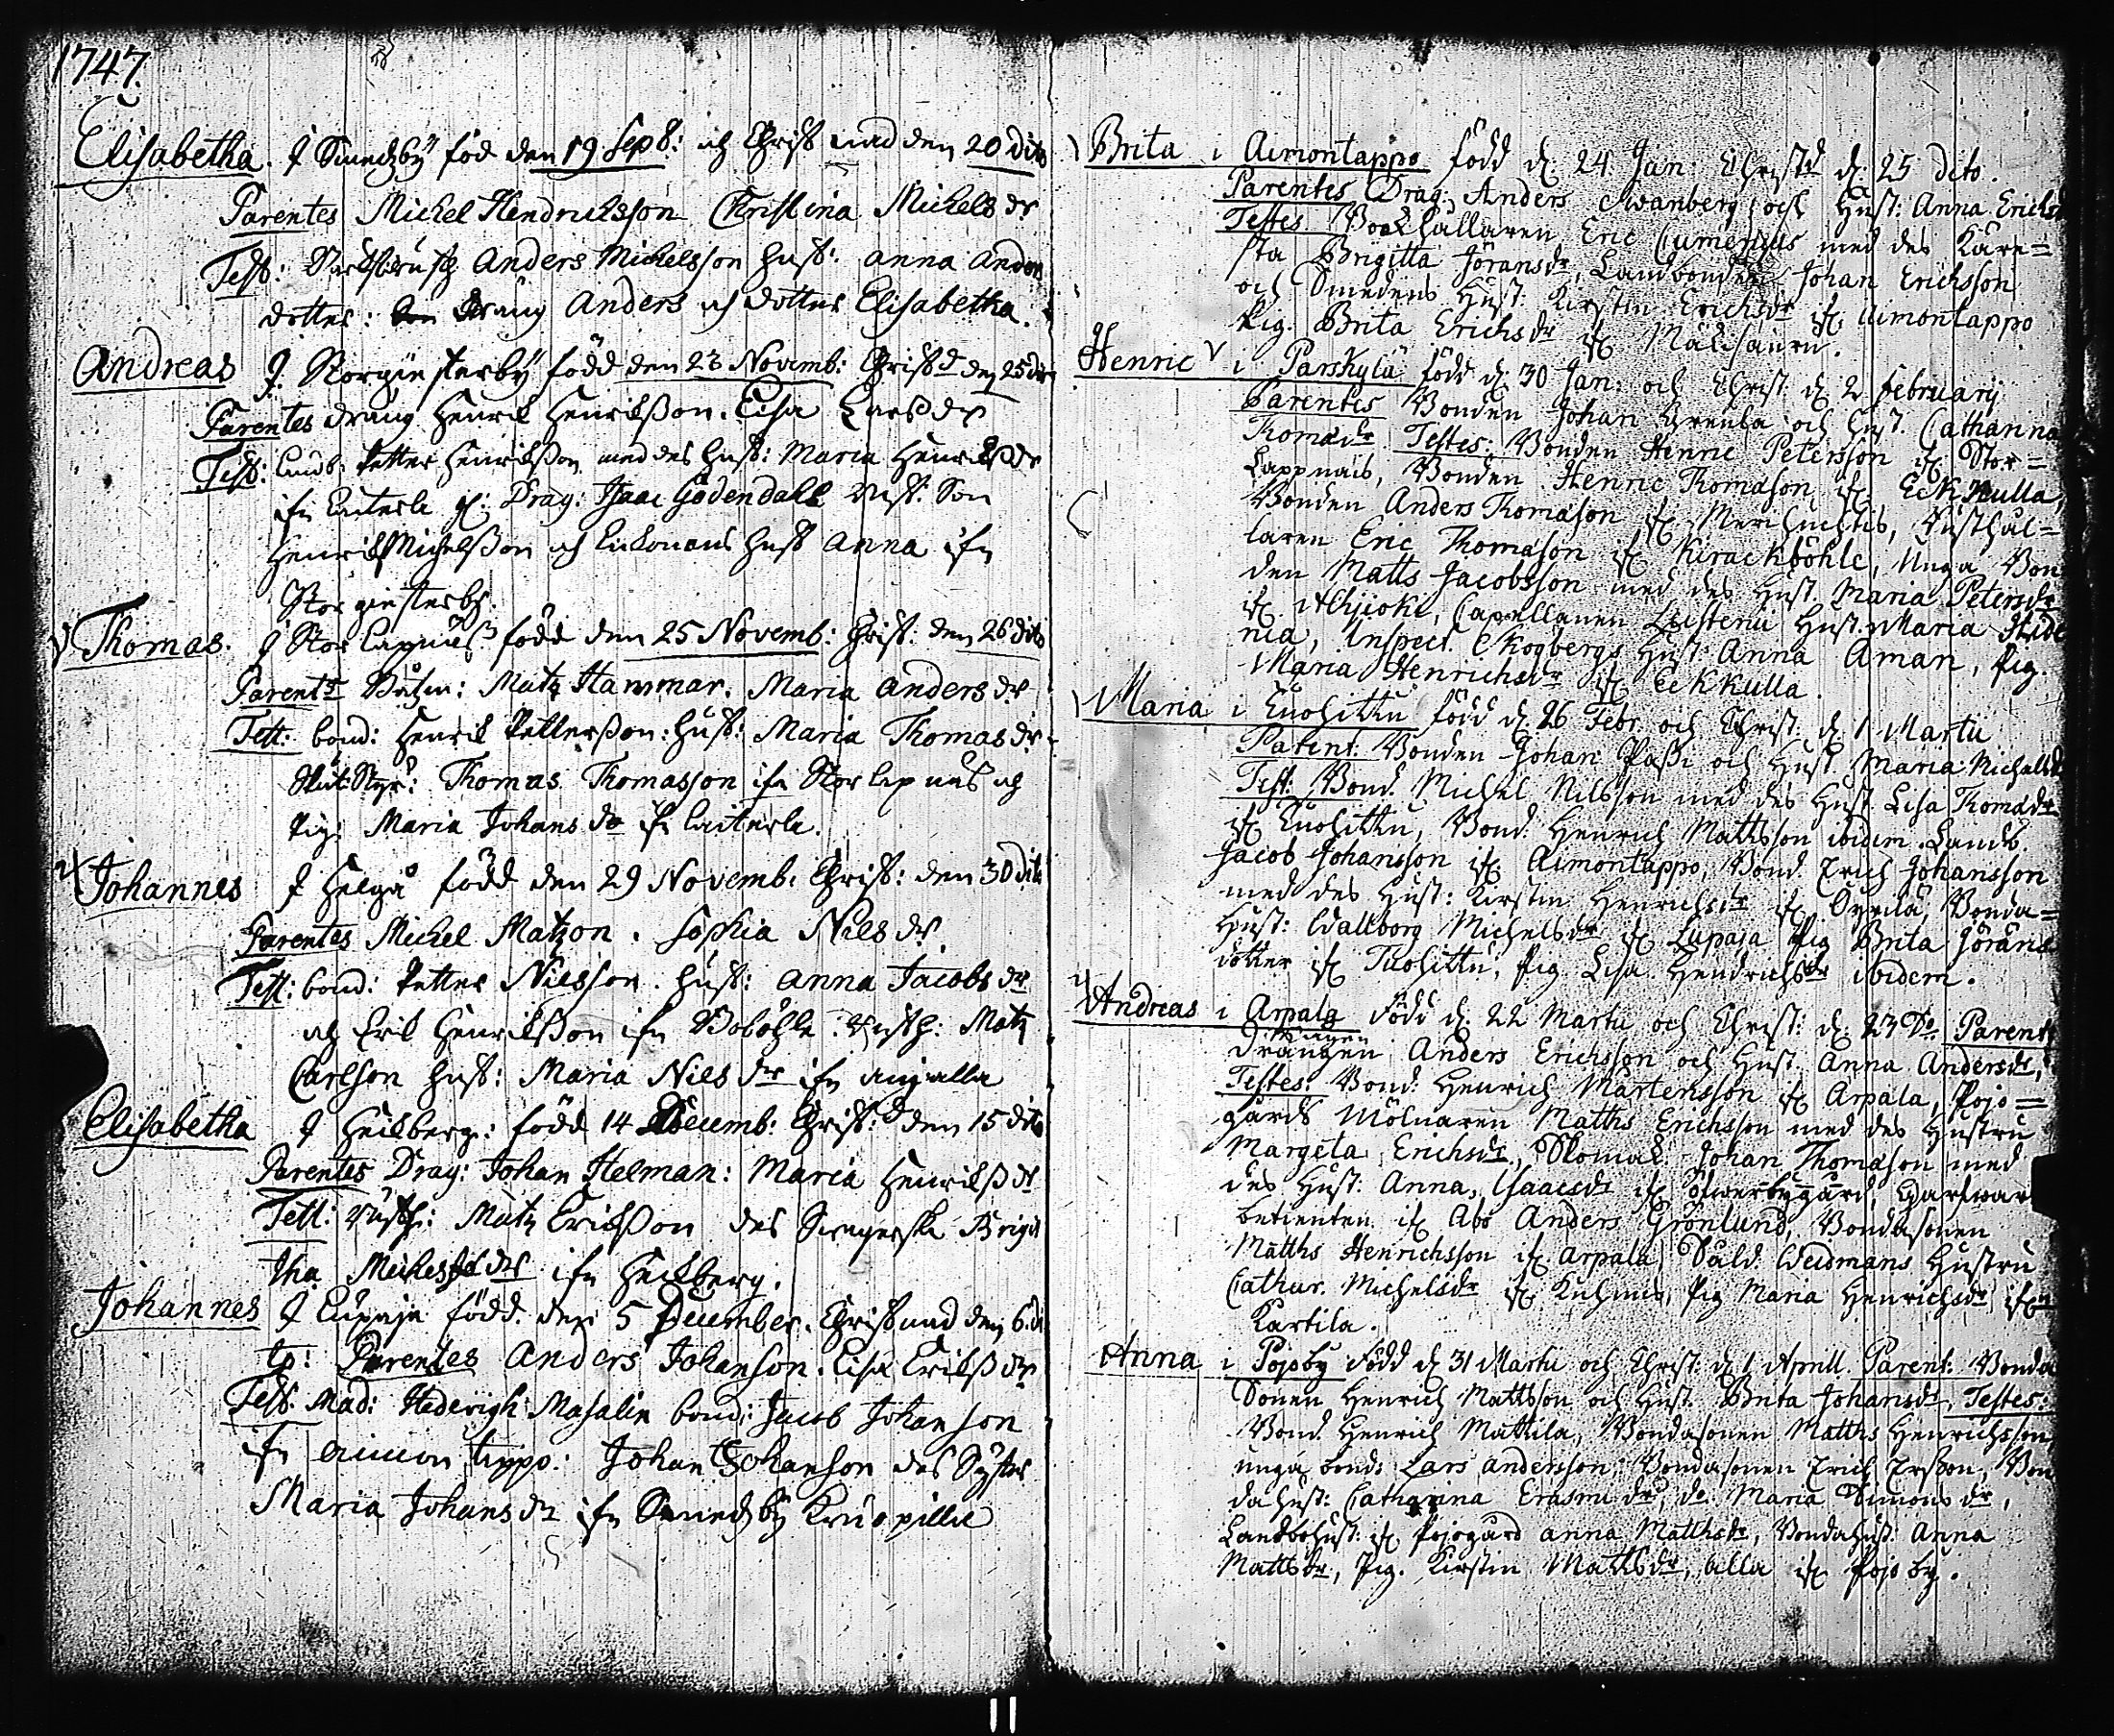 1747.
Elisabetha. I Smedsby föd den 19 Sept: och Christ nad den 20 dito
Parentes Michel Hendrichsson Christina Michels dr
Test: Anders Michelsson hust: anna Anders
dotter: dräng Anders och dotter Elisabetha.
Andreas I Storgiesterby född den 23 Novemb: Christd den 25 dito
Parentes dräng Henrik Henriksson. Lisa Larsdr
Test: Landb: Petter Henriksson med des hust: Maria Henriksdr
ifn Laiterla Drag: Isaac Södendahl Son
Henrik Michelsson och hust Anna ifn
Storgiesterby.
Thomas. I Storlapnäs född den 25 Novemb: Christ: den 26 dito
Parents Båtzm: Matz Hammar. Maria anders dr
Test: bond: Henrik Pettersson: hust: Maria Thomas dr
Thomas Thomasson ifn Storlapnäs och
Pig: Maria Johans dr ifn Laiterla.
Johannes I Helgå född den 29 Novemb: Christ: den 30 dito
Parentes Michel Matzon. Sophia Niels dr
Test: bond: Petter Nielsson. hust: anna Jacobs dr
och Erik Henriksson ifn Boböhle. Rusth: Matz
Carlson hust: Maria Niels dr ifn
Elisabetha I Heikberg: född 14 Decemb: Christ: den 15 dito
Parentes Drag: Johan Helman: Maria Henriksdr
Test: Rusth: Matz Eriksson des Brigit
tha Michelsdr ifn Heikberg.
Johannes I Lupaja född den 5 December. Christnad den 6. di
to: Parentes Anders Johanson. Lisa Eriksdr
Test: Mad: Hedevigh Masalin bond: Jacob Johanson
ifn aimontappo: Johan Johanson des Syster
Maria Johans dr ifn Smedsby
Brita i Aimontappo född d. 24 Jan: Christd d. 25 dito.
Parentes Drag: Anders Swanberg och Hust: Anna Erichsd
Testes Bockhållaren Eric Cumenius med des Käre=
sta Brigitta Jöransdr, Landbonden Johan Erichsson
och Smedens Hust: Kirstin Erichsdr ifr Aimontappo
Pig. Brita Erichsdr ifr
Henric i Parskylä född d. 30 Jan: och Christ d. 2 februarij
Parentes Bonden Johan Grenla och hust. Catharina
Thomædr Testes: Bonden Henric Petersson ifr Stor=
Lappnäs, Bonden Henric Thomason ifr Eckkulla,
Bonden Anders Thomason ifr Rusthål=
laren Eric Thomason ifr Kirackböhle, Unga Bon
den Matts Jacobsson med des Hust Maria Petersdr
ifr Capellanen Hust. Maria
nia, Inspect. Skogbergs Hust Anna Aman, Pig.
Maria Henrichsdr ifr Eckkulla.
Maria i Tuohittu född d. 26 Febr. och Christ. d. 1 Martii
Parent: Bonden Johan Passi och Hust Maria Michelsd
Test: Bond. Michel Nilsson med des Hust Lisa Thomædr
ifr Tuohittu, Bond. Henrich Mattsson ibidem. Landb.
Jacob Johansson ifr Aimontappo, Bond Erich Johansson
med des Hust: Kirstin Henrichsdr ifr Bonda=
Hust: Wallborg Michelsdr ifr Lupaja Pig Brita Jörans
dotter ifr Tuohittu, Pig Lisa Hendrichsdr ibidem.
Andreas i Arpala född d. 22 Martii och Christ: d. 23 Do Parent
Drängen Anders Erichsson och Hust Anna Andersdr,
Testes: Bond: Henrich Mårtensson ifr Arpala, Pojo=
gårds Mölnaren Matths Erichsson med des Hustru
Margeta Erichsdr, Skomak: Johan Thomason med
des Hust: Anna Isaacsdr ifr Öfwerbygård,
betienten ifr Abo Anders Grönlund, Bondasonen
Matths Henrichsson ifr Arpala Sald: Weidmans Hustru
Cathar. Michelsdr ifr Pig Maria Henrichsdr ifrn
Kartila.
Anna i Pojoby född d 31 Martii och Christ: d. 1 Aprill. Parent: Bonda
Sonen Henrich Mattsson och Hust Brita Johansdr, Testes:
Bond. Henrich Mattila, Bondasonen Matths Henrichsson,
unga bond: Lars andersson, Bondasonen Erich Ersson, Bon
da hust: Catharina Erasmi dr, do Maria Simons dr,
Landbohust: ifr Pojogård anna Matthsdr, Bondahust: Anna
Mattsdr, Pig. Kirstin Mattsdr, alla ifr Pojoby.